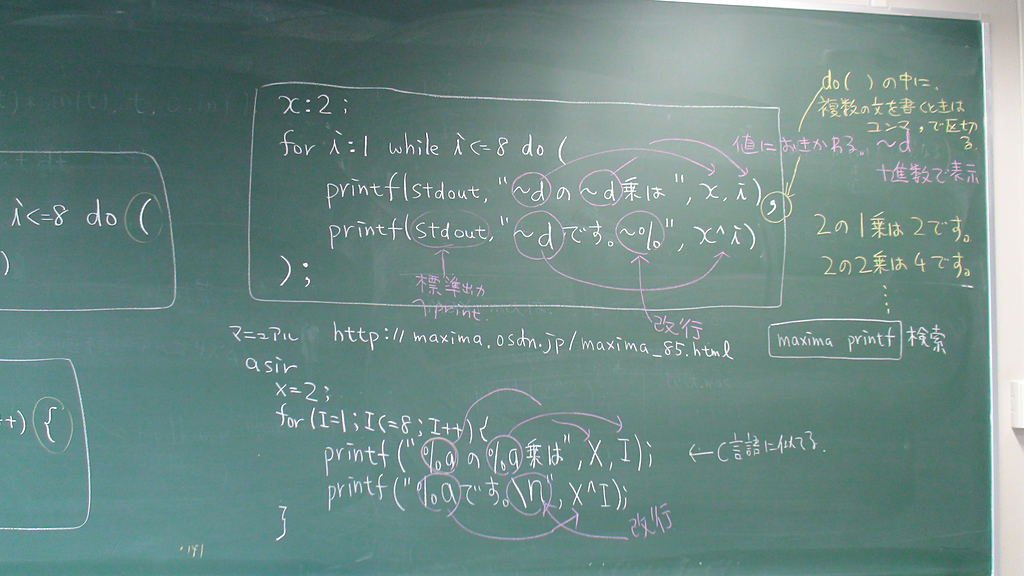 i<=8 do (
)
++) {
x:2;
for i:1 while i<=8 do (
printf(stdout, "~dの~d乗は", x, i),
printf(stdout, "~dです。~%", x^i)
);
標準出力
へprint.
改行
do( )の中に、
複数の文を書くときは
コンマ , で区切る
値におきかわる。 ~d
十進数で表示
2の1乗は2です。
2の2乗は4です。
maxima printf 検索
マニュアル http://maxima.osdn.jp/maxima_85.html
asir
x=2;
for(I=1;I<=8;I++){
printf("%aの%a乗は",X,I);
printf("%aです。\n",X^I);
}
←C言語に似てる.
改行